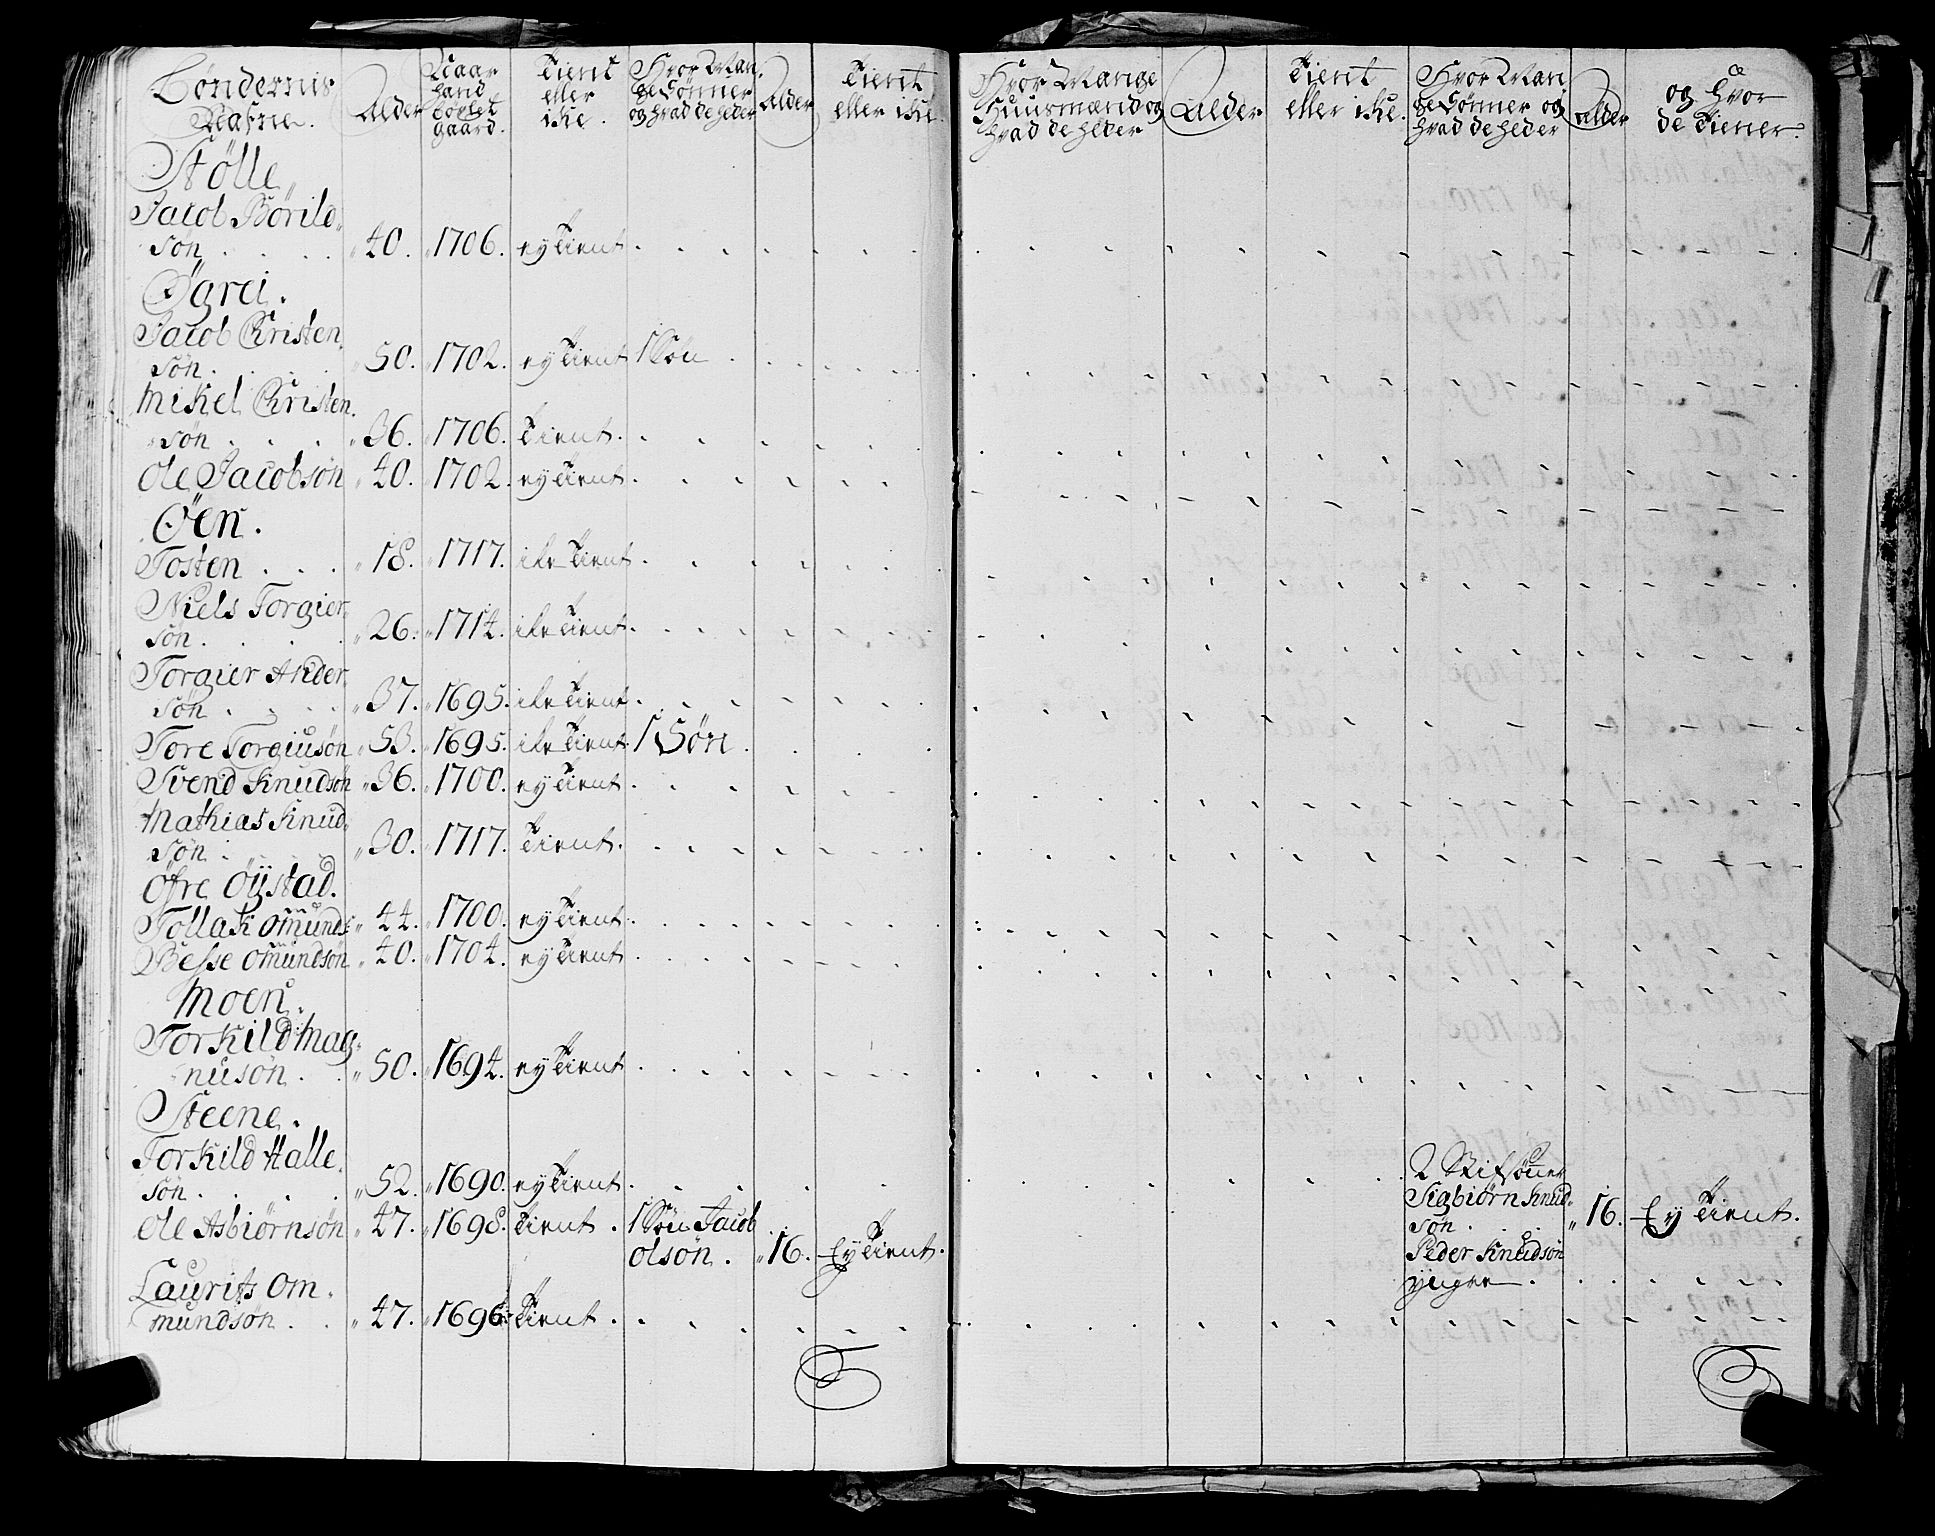 Bøndernis Nafne. Alder Naar hand bøxlet gaard. Tient eller iche. Hvor Man, ge Sønner og hvad de heder Alder Tient eller iche Hvor Mange Huusmænd og hvad de heder Alder Tient eller iche. Hvor Man ge Sønner og hvad de heder Alder og hvor de tiener.
Stølle
Jacob Børild,
søn . . . . 40. 1706. ey tient
Ögrei.
Jacob Christen,
søn. . . . 50. 1702. ey tient 1 Søn
Mikel Christen,
søn . . . 36. 1706. tient.
Ole Jacobsøn 40. 1702. ey tient.
Øen.
Tosten . . . 18. 1717. ike tient
Niels Torgier,
søn. . . . 26. 1714. ike tient.
Torgier Ander,
søn . . . 37. 1695. ike tient
Tore Torgiusøn 53. 1695. ike tient. 1 Søn
Svend Knudsøn 36. 1700. ey tient
Mathias Knud,
søn. . . 30. 1717. tient.
Öfre Öÿstad.
Tollak Omunds 44. 1700. ey tient
Besse Omundsøn 40. 1704. ey tient
Moen.
Torkild Mag,
nusøn . . 50. 1694. ey tient
Steene.
Torkild Halle,
søn. . . . 52. 1690. ey tient. 2 Stifsønner
Sigbiørn Knud,
søn . 16. Ey tient.
Ole Asbiørnsøn 47. 1698. tient . 1 Søn Jacob
olsøn . 16. Ey tient. Peder Knudsøn
yngre .
Laurits Om,
mundsøn . . 47. 1696. tient .